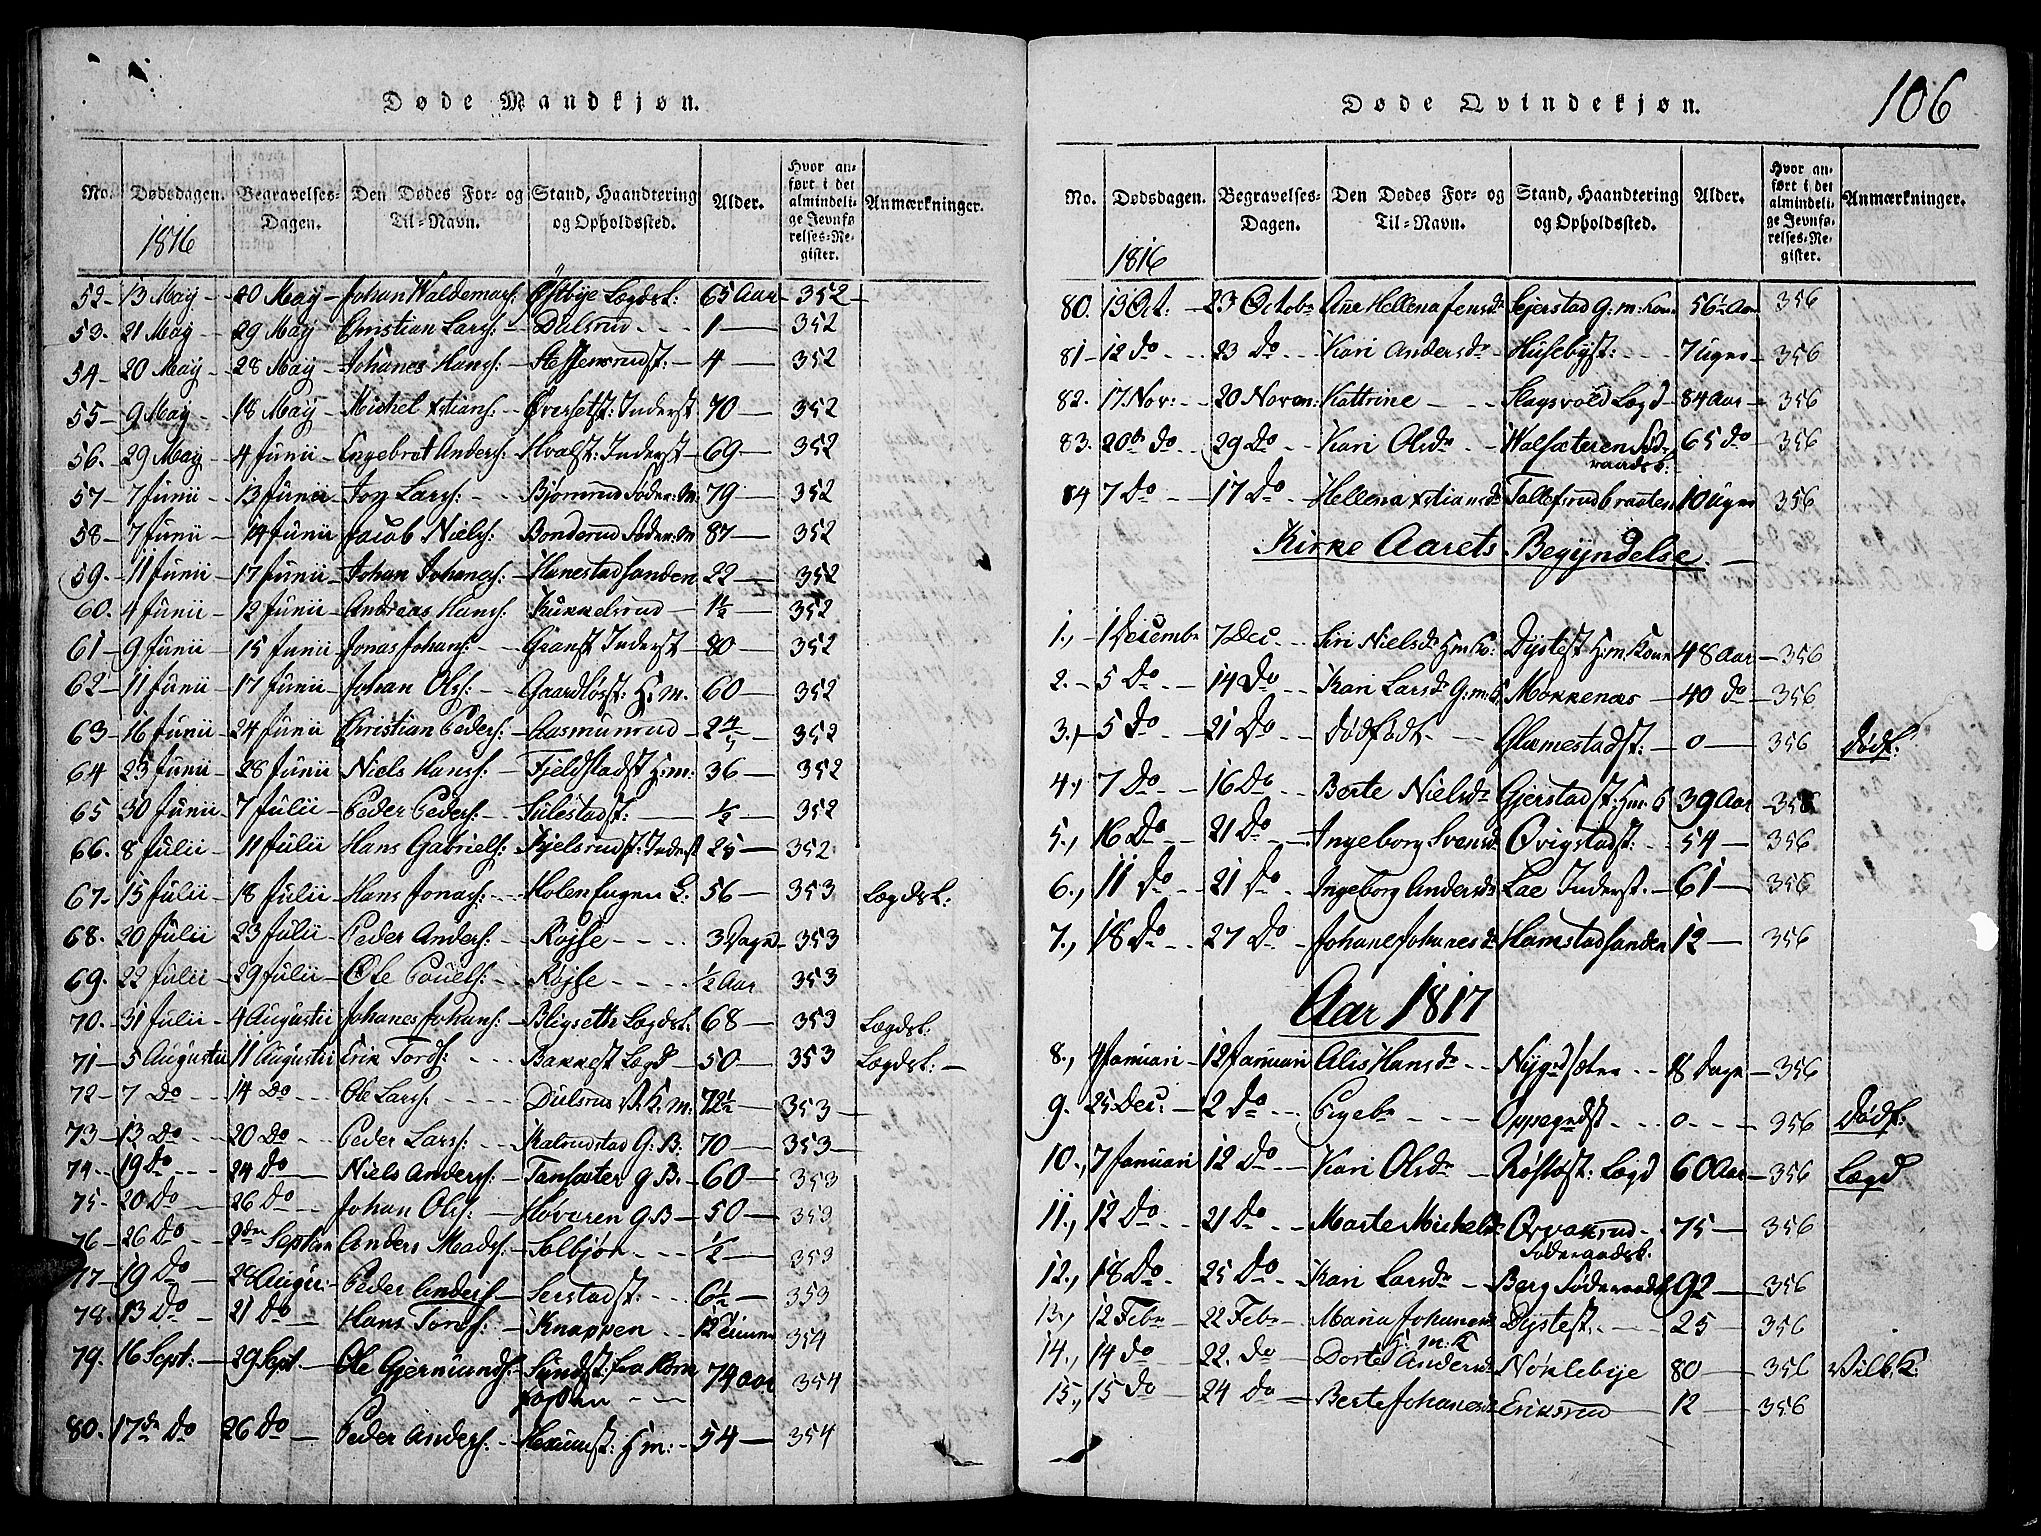 Døde Mandkjøn.
No. Dødsdagen. Begravelses-Dagen. Den Dødes For- og Til-Navn. Stand, Haandtering og Opholdssted. Alder. Hvor anført i det almindelige Jevnførelses-Register. Anmærkninger.
1816
52 - 13 May - 20 May - Johan Waldemars: Östbye Lægdsl: 65 Aar - 352 -
53. 21 May - 29 May Christian Lars: - Dulsrud - - - 1 - 352
54 - 20 May - 28 May - Johanes Hans: Steffensrudst: - 4 - 352
55 - 9 May - 18 May - Michel xtians: - Øversetst: Inderst 70 - 352
56. 29 May - 4 Junii - Engebret Anders: - Hvalst: Inderst - 69 - 352
57 - 7 Junii - 13 Junii - Joy Lars: - - Bjørnrud Søder: M 79 - 352
58 - 7 Junii - 14 Junii - Jacob Niels: - Bonderud Søder: M 87 - 352
59. - 11 Junii - 17 Junii - Johan Johanes: - Hanestadsanden 22 - 352
60. 4 Junii - 12 Junii - Andreas Hans: - Kunkelsrud - 1½ - 352
61 - 9 Junii - 15 Junii - Jonas Johans: - - Granst Inderst - 80 - 352
62 - 11 Junii - 17 Junii - Johan Ols: - - Gaardløsst: H: m. 60 - 352
63 - 16 Junii - 24 Junii - Christian Peders: - Aasmunrud - 2 - 352
64 23 Junii - 28 Junii - Niels Hans: - Fjeldstadst H:m: 36 - 352
65 30 Junii - 7 Julii - Peder Peders: - Sulestadst: - ½ - 352
66. 8 Julii - 11 Julii - Hans Gabriels: - Kjelsrudst: Inderst 25 - 352
67 - 15 Julii - 18 Julii - Hans Jonas: - - Holen Eugen L: 56 - 353 Lægdsl:
68. 20 Julii 23 Julii - Peder Anders: - - Røjse - - - 3 Dage - 353
69. 22 Julii - 29 Julii - Ole Pouels: - Røjse - - - - ½ Aar 353
70. 31 Julii - 4 Augustii Johanes Johans: - Bligseth Lægdsl. 68 - 353 Lægdsl:
71 - 5 Augustii 11 Augustii Erik Tords: - - - Bakkest Lægd - 50 - 353 Lægdsl: -
72 - 7 Do - - 14 Do - - - Ole Lars: - - - - Dulsrud 72½ - 353 -
73 - 13 Do - - 20 Do - - - Peder Lars: - - - Kalrustad G: B. 70 - 353 -
74 - 19 Do - - - 24 Do - Niels Anders: - Tansæter G. B. - 60 - 353
75 - 20 Do - 26 Do - - - Johan Ols: - - Hoveren G. B - 50 - 353
76 - 26 Do - 2den Septbr Anders Mads: - Solbjør - - - ½ - 353
77 - 19 Do - 28 Augu: - Peder Anders - Serstadst: - - 6½ - 353
78. - 13 Do - 21 Do - Hans Tords: - Knappen - - 12 Timer 354
79. 16 Sept: - 29 Sept. - Ole Gjermunds: - Sundst: fra Korn
fossen - - 74 Aar 354
80. - 17de Do - 26 Do - Peder Anders: - Hexumst: H m: - 54 - 354
106
Døde Qvindekjøn.
No. Dødsdagen. Begravelses-Dagen. Den Dødes For- og Til-Navn. Stand, Haandtering og Opholdssted. Alder. Hvor anført i det almindelige Jevnførelses-Register. Anmærkninger.
1816
80. 19 Oct: - 23 Octob: Ane Hellena Jensdr Gjerstad G: m: Kone 56½ Aar 356
81 - 12 Do - - - 23 Do - - Kari Andersdr - Husebyst: - - - 7 Uger - 356
82. - 17 Nov: - - 20 Novem: Kattrine - - - Slagsvold Lægd - 84 Aar - 356
83. 20de Do - 29 Do - - Kari Olsdr - Walsæteren Sød-
raadsl: 65 Do - 356
84 7 Do - - - 17 Do - - Hellena xtiansdr Tollefsrudbraaten 10 Uger 356
Kirke Aarets Begyndelse. -
1., - 1 Decembr 7 Dec - - - Siri Nielsdr H m Ko: Dystest H: m Kone 48 Aar - 356
2. - 5 Do - - 14 Do - - Kari Larsdr G: m: K Mokkenæs - 40 Do - 356
3., - 5 Do - - 21 Do - - Dødfødt - - Glæmestadst: - 0 - 356 Dødf:
4., - 7 Do - - 16 Do - - Berte Nielsdr Gjerstadst: Hm: 39 Aar - 356
5., 16 Do - - 21 Do - - Ingeborg Svensdr Qvigstadst: - - 54 - 356
6., 11 Do - - 21 Do - Ingeborg Andersdr Lae Inderst. - 61 - 356
7., 18 Do - - 27 Do - Johane Johanesdr Hamstadsanden 12 - 356
Aar 1817
8., 4 Januari - 12 Januari Alis Hansdr - - Nygrdsæter - - 18 Dage - 356
9. 25 Dec: - 2 Do - - Pigebr - - - Oppegrdst - - - 0 - - - 356 Dødf:
10., 7 Januari 12 Do - - Kari Olsdr - - Røslæst: Lægd 60 Aar - 356 Lægd
11., 12 Do - - 21 Do - - Marte Michelsdr Orvaksrud - 75 - 356
Søderaadsl.
12., 18 Do - - 25 Do - Kari Larsdr - - Berg Søderaadsl 92 - 356
13., 12 Febr - 22 Febr - Maria Johanesdr Dystest. - - - 25 - 356
G: m: K
14., 14 do - - 22. do - - Dorte Andersdr Nøklebye 80 - 356 Vilb. K.
15., 15 Do - 24 Do - - Berte Johanesdr Eriksrud - 12 - 356